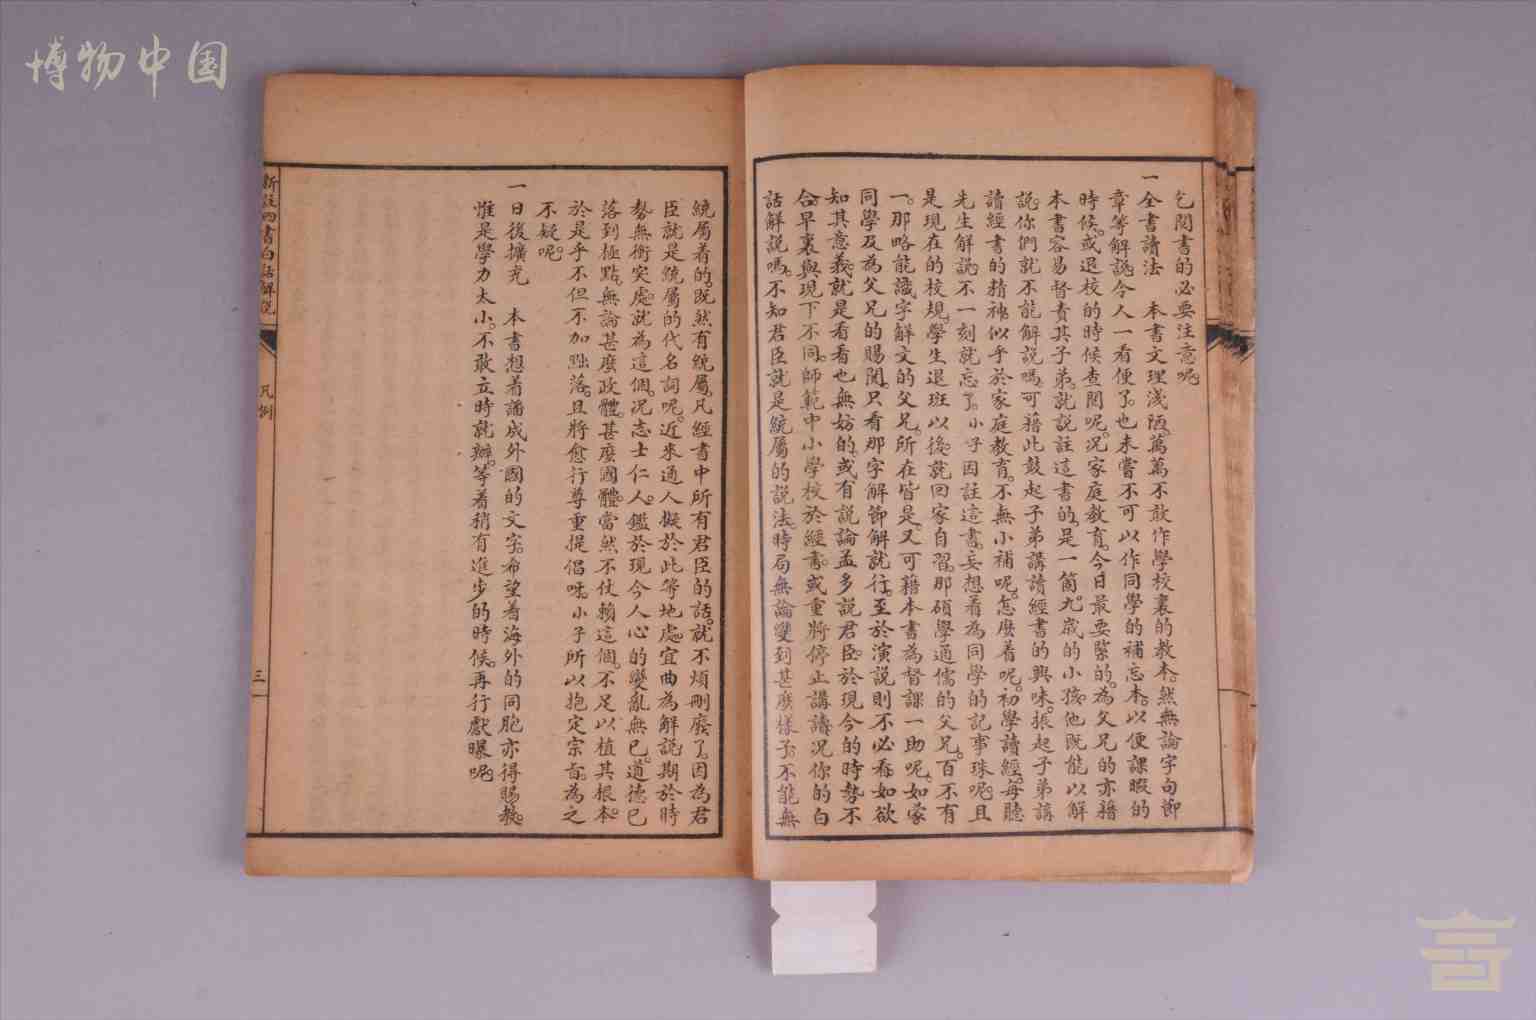 博物中国
乞閱書的必要注意呢
一全書讀法　本書文理淺陋。萬萬不敢作學校裏的教本。然無論字句節
章等解說。今人一看便了。也未嘗不可以作同學的補忘本。以便課暇的
時候。或退校的時候查閱呢。况家庭教育。今日最要緊的。為父兄的亦藉
本書容易督責其子弟。就說註這書的。是一箇九歲的小孩。他既能以解
說。你們就不能解說嗎。可藉此鼓起子弟講讀經書的興味。振起子弟講
讀經書的精神。似乎於家庭教育。不無小補呢。怎麼着呢。初學讀經。每聽
先生解說。不一刻就忘了。小子因註這書。妄想着為同學的記事珠呢。且
是現在的校規。學生退班以後。就回家自習。那碩學通儒的父兄。百不有
一。那略能識字解文的父兄。所在皆是。又可藉本書為督課一助呢。如蒙
同學及為父兄的賜閱。只看那字解節解就行。至於演說則不必看。如欲
知其意義。就是看看也無妨的。或有說論孟多說君臣。於現今的時勢不
合。早裏與現下不同。師範中小學校於經書。或重將停止講讀。况你的白
話解說嗎。不知君臣就是統屬的說法。時局無論變到甚麼樣子。不能無
統屬着的。既然有統屬。凡經書中所有君臣的話。就不煩刪廢了。因為君
臣就是統屬的代名詞呢。近來通人擬於此等地處。宜曲為解說。期於時
勢無衝突處。就為這個。况志士仁人。鑑於現今人心的變亂無已。道德已
落到極點。無論甚麼政體。甚麼國體。當然不仗賴這個。不足以植其根本。
於是乎不但不加黜落。且將愈行尊重提倡呀。小子所以抱定宗旨。為之
不疑呢。
一日後擴充　本書想着譒成外國的文字。希望着海外的同胞亦得賜教。
惟是學力太小。不敢立時就辦。等着稍有進步的時候。再行獻曝呢。
新註四書白話解說
凡例
三